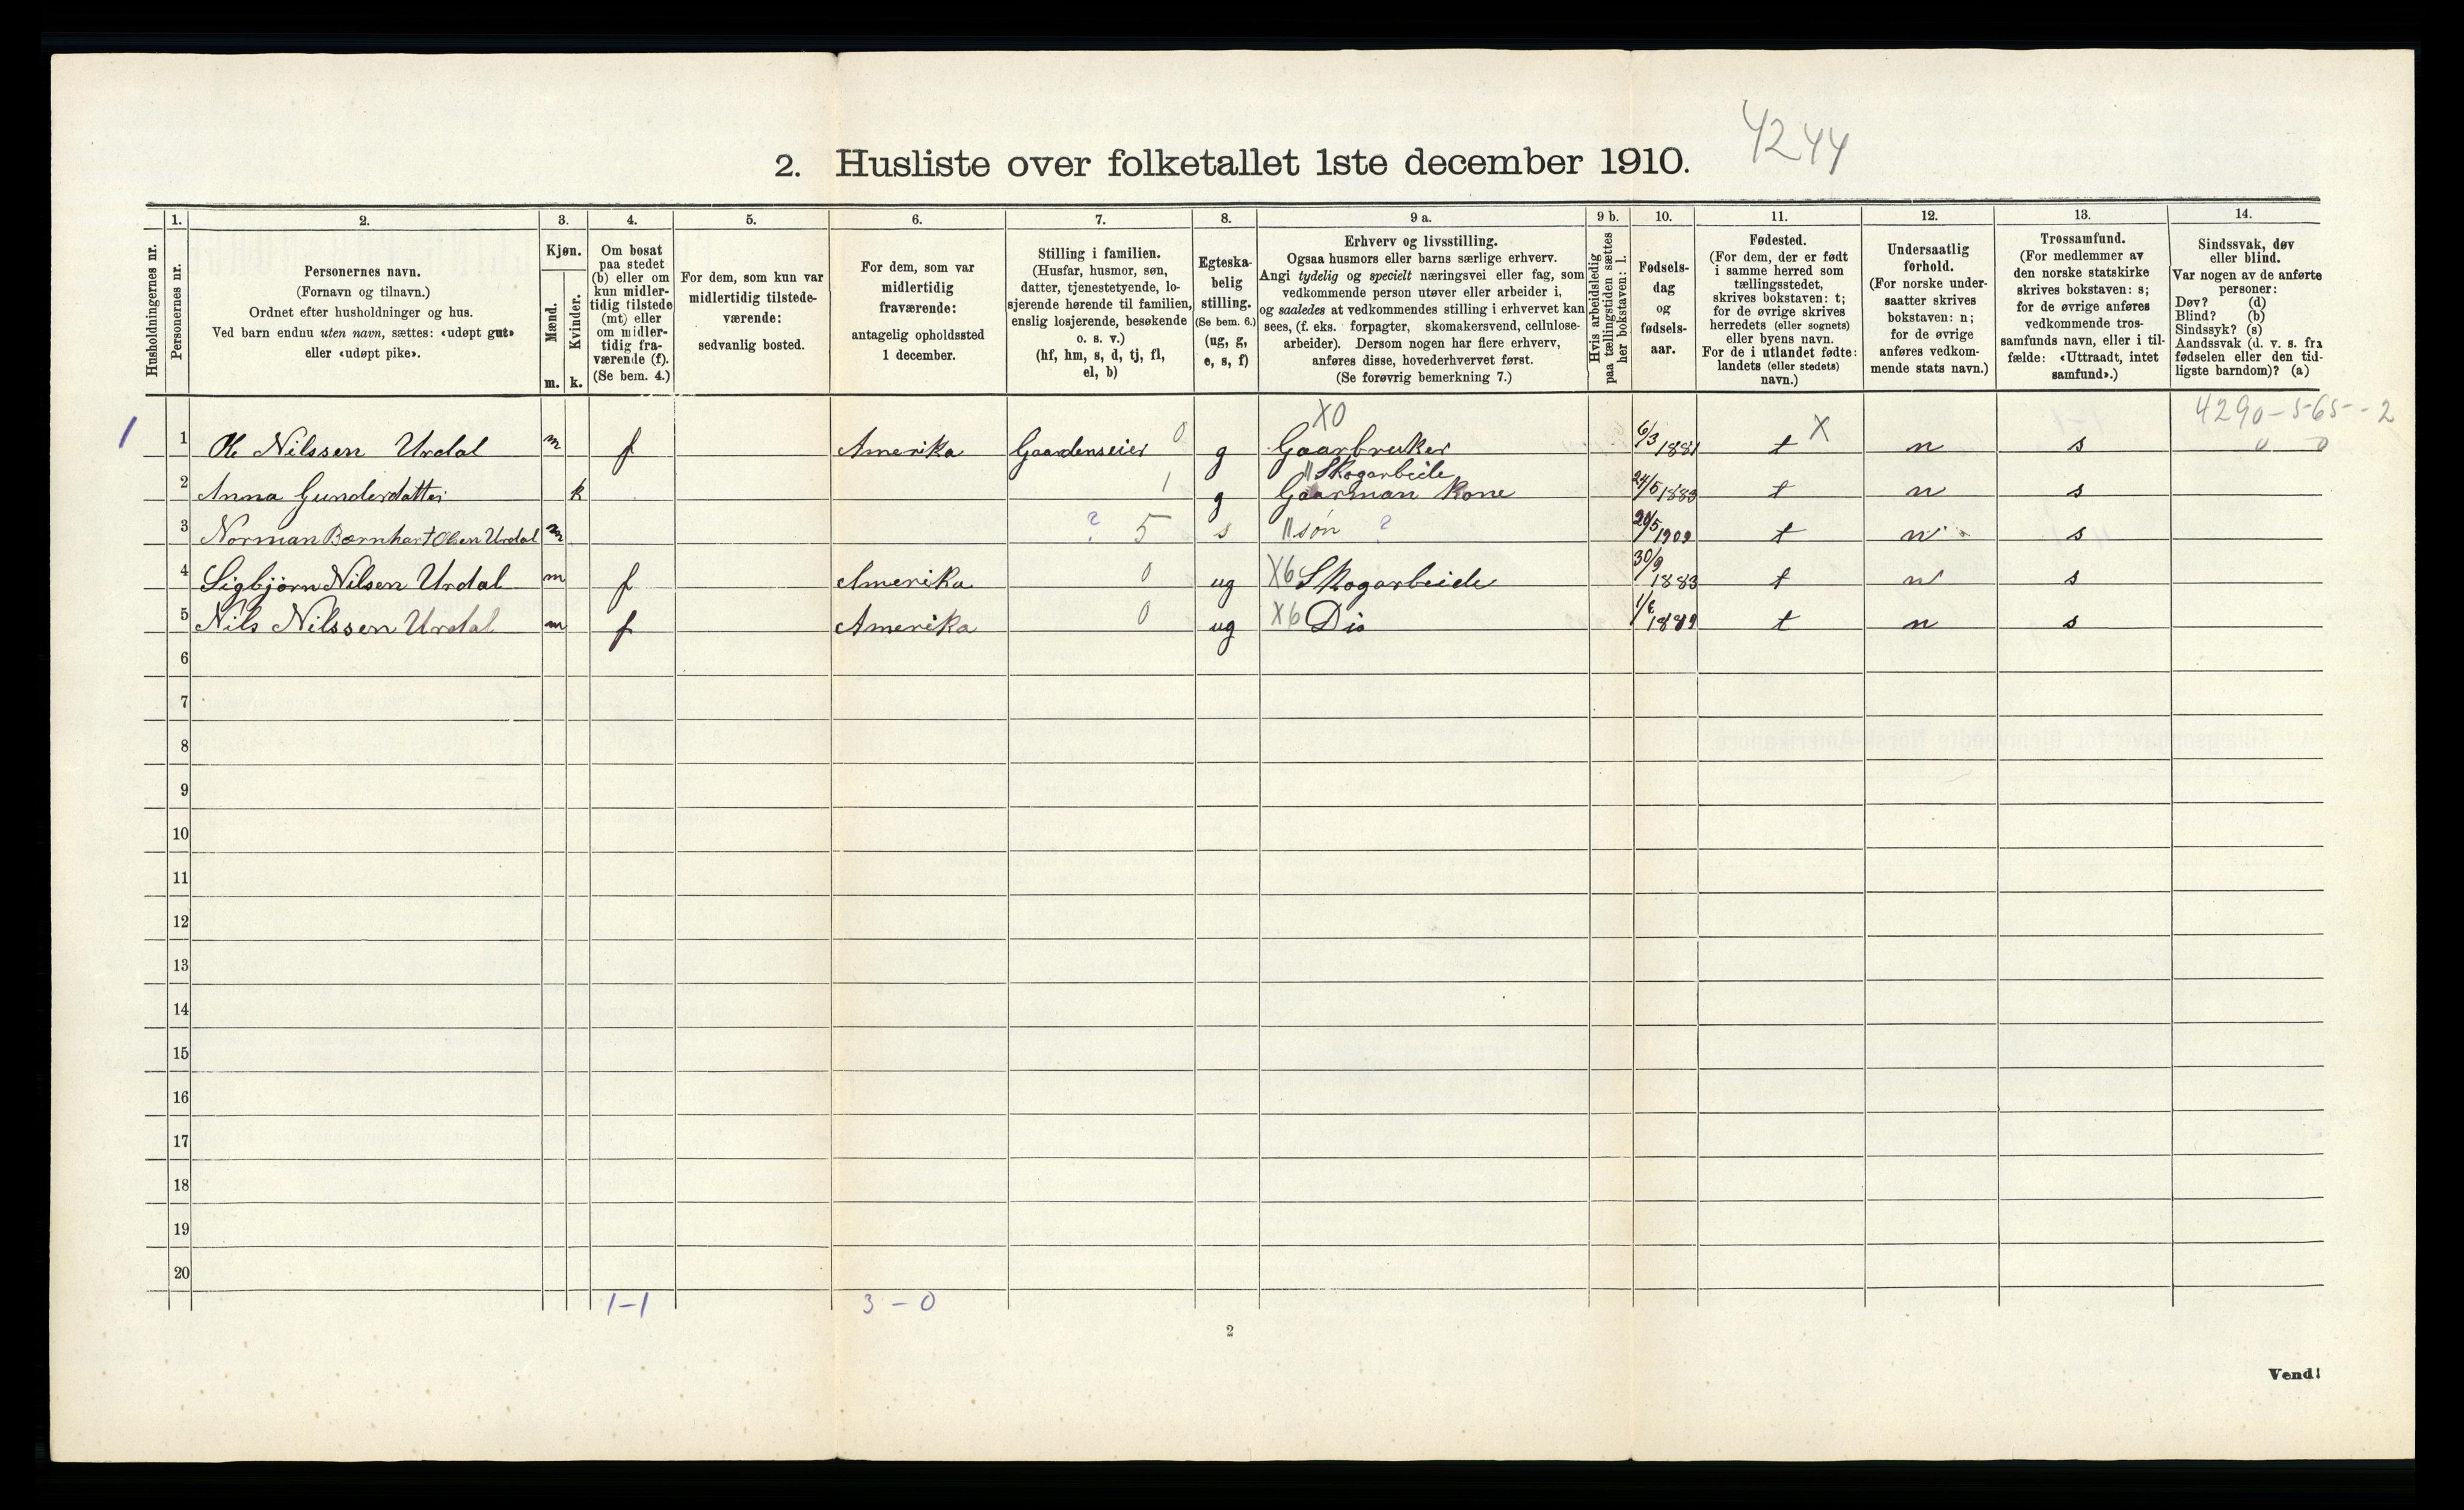 4244
2. Husliste over folketallet 1ste december 1910.
Husholdningernes nr.
1.
Personernes nr.
2.
Personernes navn.
(Fornavn og tilnavn.)
Ordnet efter husholdninger og hus.
Ved barn endnu uten navn, sættes: «udøpt gut»
eller «udøpt pike».
3.
Kjøn.
Mænd.
Kvinder.
m. k.
4.
Om bosat
paa stedet
(b) eller om
kun midler-
tidig tilstede
(mt) eller
om midler-
tidig fra-
værende (f).
(Se bem. 4.)
5.
For dem, som kun var
midlertidig tilstede-
værende:
sedvanlig bosted.
6.
For dem, som var
midlertidig
fraværende:
antagelig opholdssted
1 december.
7.
Stilling i familien.
(Husfar, husmor, søn,
datter, tjenestetyende, lo-
sjerende hørende til familien,
enslig losjerende, besøkende
o. s. v.)
(hf, hm, s, d, tj, fl,
el, b)
8.
Egteska-
belig
stilling.
(Se bem. 6.)
(ug, g,
e, s, f)
9 a.
Erhverv og livsstilling.
Ogsaa husmors eller barns særlige erhverv.
Angi tydelig og specielt næringsvei eller fag, som
vedkommende person utøver eller arbeider i,
og saaledes at vedkommendes stilling i erhvervet kan
sees, (f. eks. forpagter, skomakersvend, cellulose-
arbeider). Dersom nogen har flere erhverv,
anføres disse, hovederhvervet først.
(Se forøvrig bemerkning 7.)
9 b.
Hvis arbeidsledig
paa tællingstiden sættes
her bokstaven: l.
10.
Fødsels-
dag
og
fødsels-
aar.
11.
Fødested.
(For dem, der er født
i samme herred som
tællingsstedet,
skrives bokstaven: t;
for de øvrige skrives
herredets (eller sognets)
eller byens navn.
For de i utlandet fødte:
landets (eller stedets)
navn.)
12.
Undersaatlig
forhold.
(For norske under-
saatter skrives
bokstaven: n;
for de øvrige
anføres vedkom-
mende stats navn.)
13.
Trossamfund.
(For medlemmer av
den norske statskirke
skrives bokstaven: s;
for de øvrige anføres
vedkommende tros-
samfunds navn, eller i til-
fælde: «Uttraadt, intet
samfund».)
14.
Sindssvak, døv
eller blind.
Var nogen av de anførte
personer:
Døv? (d)
Blind? (b)
Sindssyk? (s)
Aandssvak (d. v. s. fra
fødselen eller den tid-
ligste barndom)? (a)
X0 4290-565--2
1 1 Ole Nilssen Urdal m f Amerika Gaardenseier 0 g Gaarbruker 6/3 1881 t X n s 0 0
" Skogarbeide
2 Anna Gunderdatter k 1 g Gaarman Kone 24/5 1883 t n s
3 Norman Bærnhart Olsen Urdal m ? 5 s " søn ? 20/5 1909 t n s
4 Sigbjørn Nilsen Urdal m f Amerika 0 ug X6 Skogarbeide 30/9 1883 t n s
5 Nils Nilssen Urdal m f Amerika 0 ug X6 Dio 1889 t n s
6
7
8
9
10
11
12
13
14
15
16
17
18
19
20
1-1 3 - 0
2
Vend!